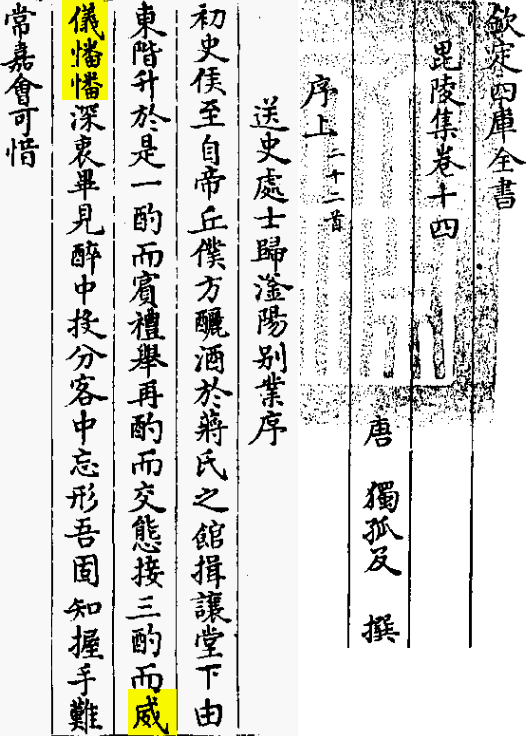 欽定四庫全書
毘陵集卷十四
唐 獨孤及 撰
序上二十二首
送史處士歸滏陽别業序
初史侯至自帝丘僕方釃酒於蔣氏之館揖讓堂下由
東階升於是一酌而賓禮舉再酌而交態接三酌而威
儀憣憣深衷畢見醉中投分客中忘形吾固知握手難
常嘉會可惜